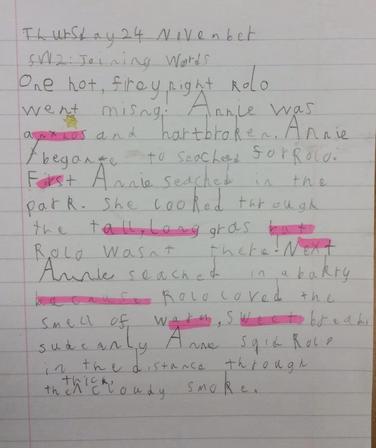 Thursday 24 November
SW2: Joining Words
One hot, firey night Rolo
went misng. Annie was
anxios and hartbroken. Annie
began to seached for Rolo.
First Annie seached in the
park. She looked through
the tall, long gras but
Rolo wasnt there! Next
Annie seached in a bakry
because Rolo loved the
smell of warm, sweet bread.
suddanly Anne spid Rolo
in the distance through
the thick, cloudy smoke.